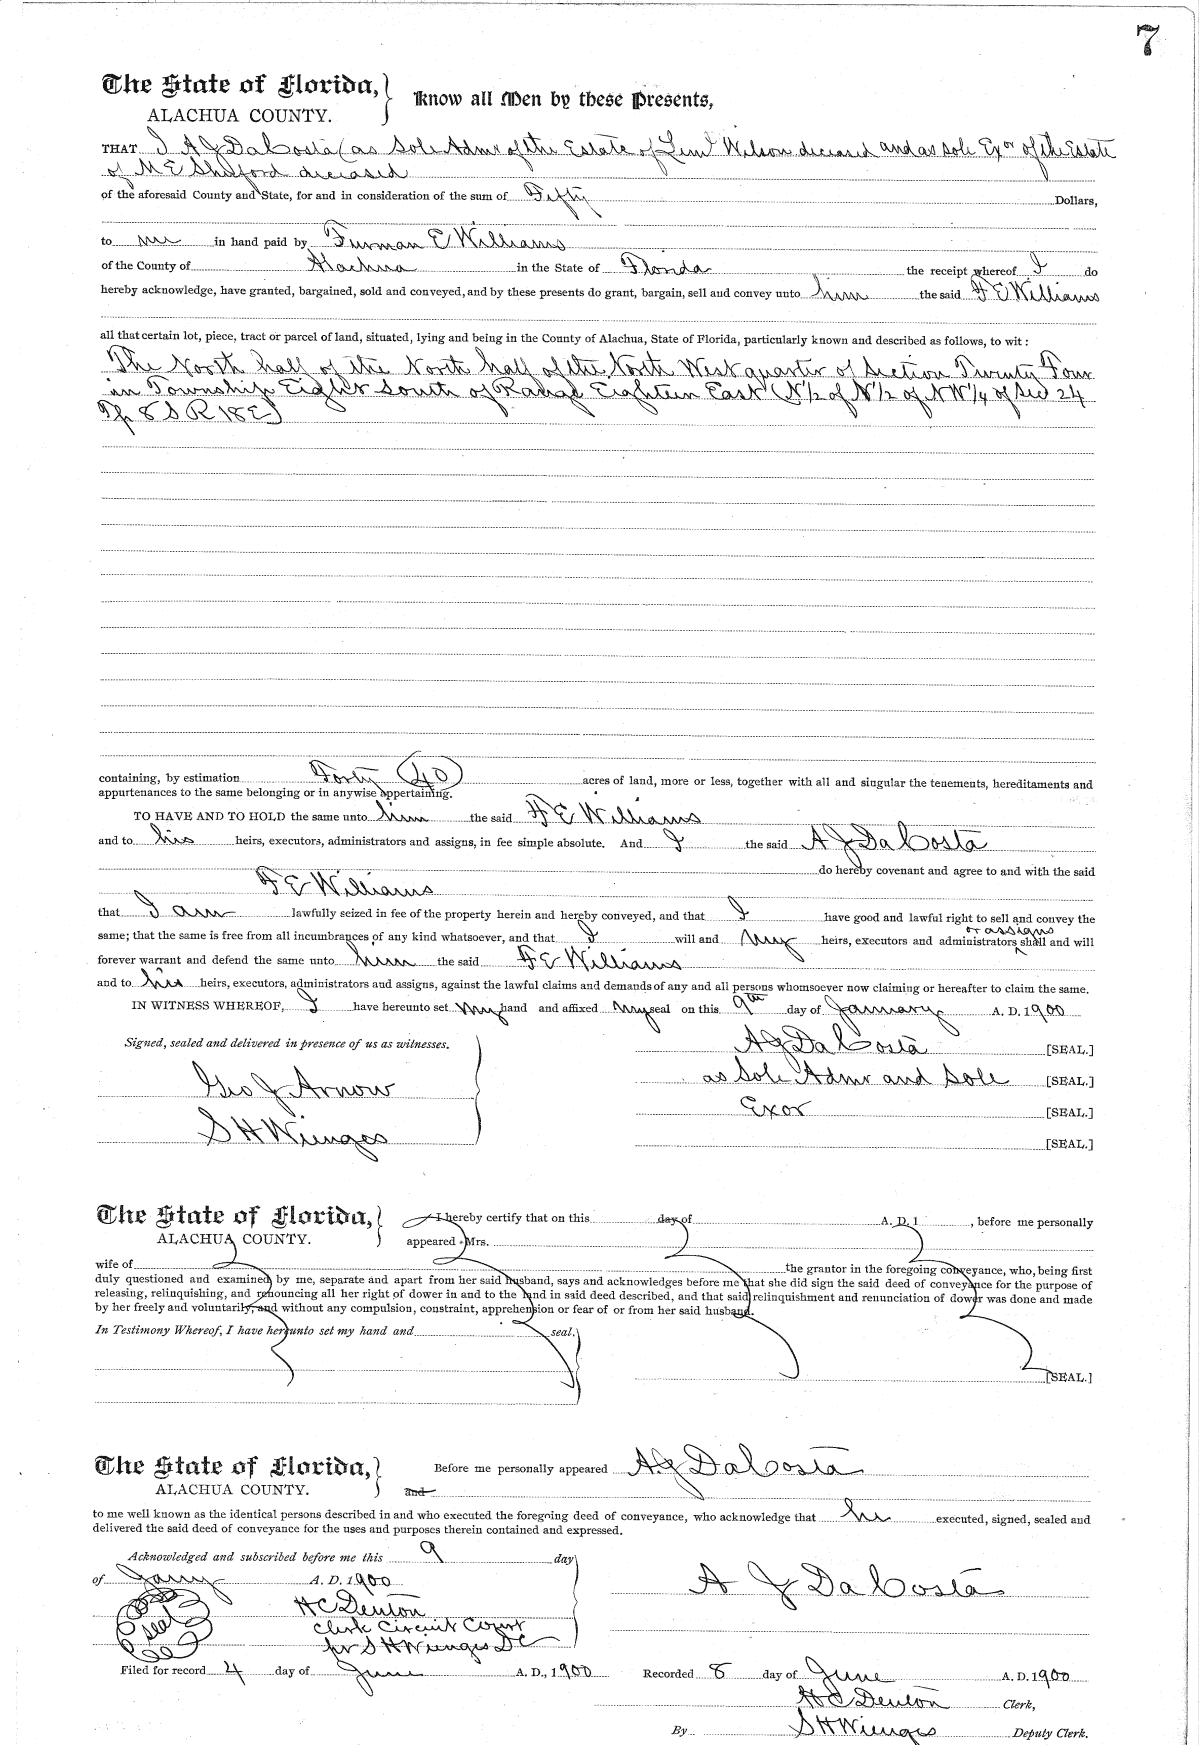 7
The State of Florida, Know all Men by these Presents,
ALACHUA COUNTY.
THAT I A J DaCosta (as Sole Admr of the Estate of Wilson deceased and as sole Exor of the Estate
of M E deceased
of the aforesaid County and State, for and in consideration of the sum of Fifty Dollars,
to me in hand paid by Furman E Williams
of the County of Alachua in the State of Florida the receipt whereof I do
hereby acknowledge, have granted, bargained, sold and conveyed, and by these presents do grant, bargain, sell and convey unto him the said F E Williams
all that certain lot, piece, tract or parcel of land, situated, lying and being in the County of Alachua, State of Florida, particularly known and described as follows, to wit :
The North half of the North half of the North West quarter of Section Twenty Four
in Township Eight South of Range Eighteen East (N½ of N½ of NW¼ of Sec 24
Tp 8 S R 18 E)
containing, by estimation Forty (40) acres of land, more or less, together with all and singular the tenements, hereditaments and
appurtenances to the same belonging or in anywise appertaining.
TO HAVE AND TO HOLD the same unto him the said F E Williams
and to his heirs, executors, administrators and assigns, in fee simple absolute. And I the said A J DaCosta
do hereby covenant and agree to and with the said
F E Williams
that I am lawfully seized in fee of the property herein and hereby conveyed, and that I have good and lawful right to sell and convey the
same; that the same is free from all incumbrances of any kind whatsoever, and that I will and my heirs, executors and administrators or assigns shall and will
forever warrant and defend the same unto him the said F E Williams
and to his heirs, executors, administrators and assigns, against the lawful claims and demands of any and all persons whomsoever now claiming or hereafter to claim the same.
IN WITNESS WHEREOF, I have hereunto set my hand and affixed my seal on this 9th day of January A. D. 1900
Signed, sealed and delivered in presence of us as witnesses. A J DaCosta [SEAL.]
Geo J Arnow as Sole Admr and Sole [SEAL.]
Exor [SEAL.]
S H Wienges [SEAL.]
The State of Florida, I hereby certify that on this day of A. D. 1 , before me personally
ALACHUA COUNTY. appeared Mrs.
wife of the grantor in the foregoing conveyance, who, being first
duly questioned and examined by me, separate and apart from her said husband, says and acknowledges before me that she did sign the said deed of conveyance for the purpose of
releasing, relinquishing, and renouncing all her right of dower in and to the land in said deed described, and that said relinquishment and renunciation of dower was done and made
by her freely and voluntarily, and without any compulsion, constraint, apprehension or fear of or from her said husband.
In Testimony Whereof, I have hereunto set my hand and seal.
[SEAL.]
The State of Florida, Before me personally appeared A J DaCosta
ALACHUA COUNTY. and
to me well known as the identical persons described in and who executed the foregoing deed of conveyance, who acknowledge that he executed, signed, sealed and
delivered the said deed of conveyance for the uses and purposes therein contained and expressed.
Acknowledged and subscribed before me this 9 day
of Jany A. D. 1900 A J DaCosta
seal H C Denton
Clerk Circuit Court
per S H Wienges D C
Filed for record 4 day of June A. D., 1900 Recorded 8 day of June A. D. 1900
H C Denton Clerk,
By S H Wienges Deputy Clerk.